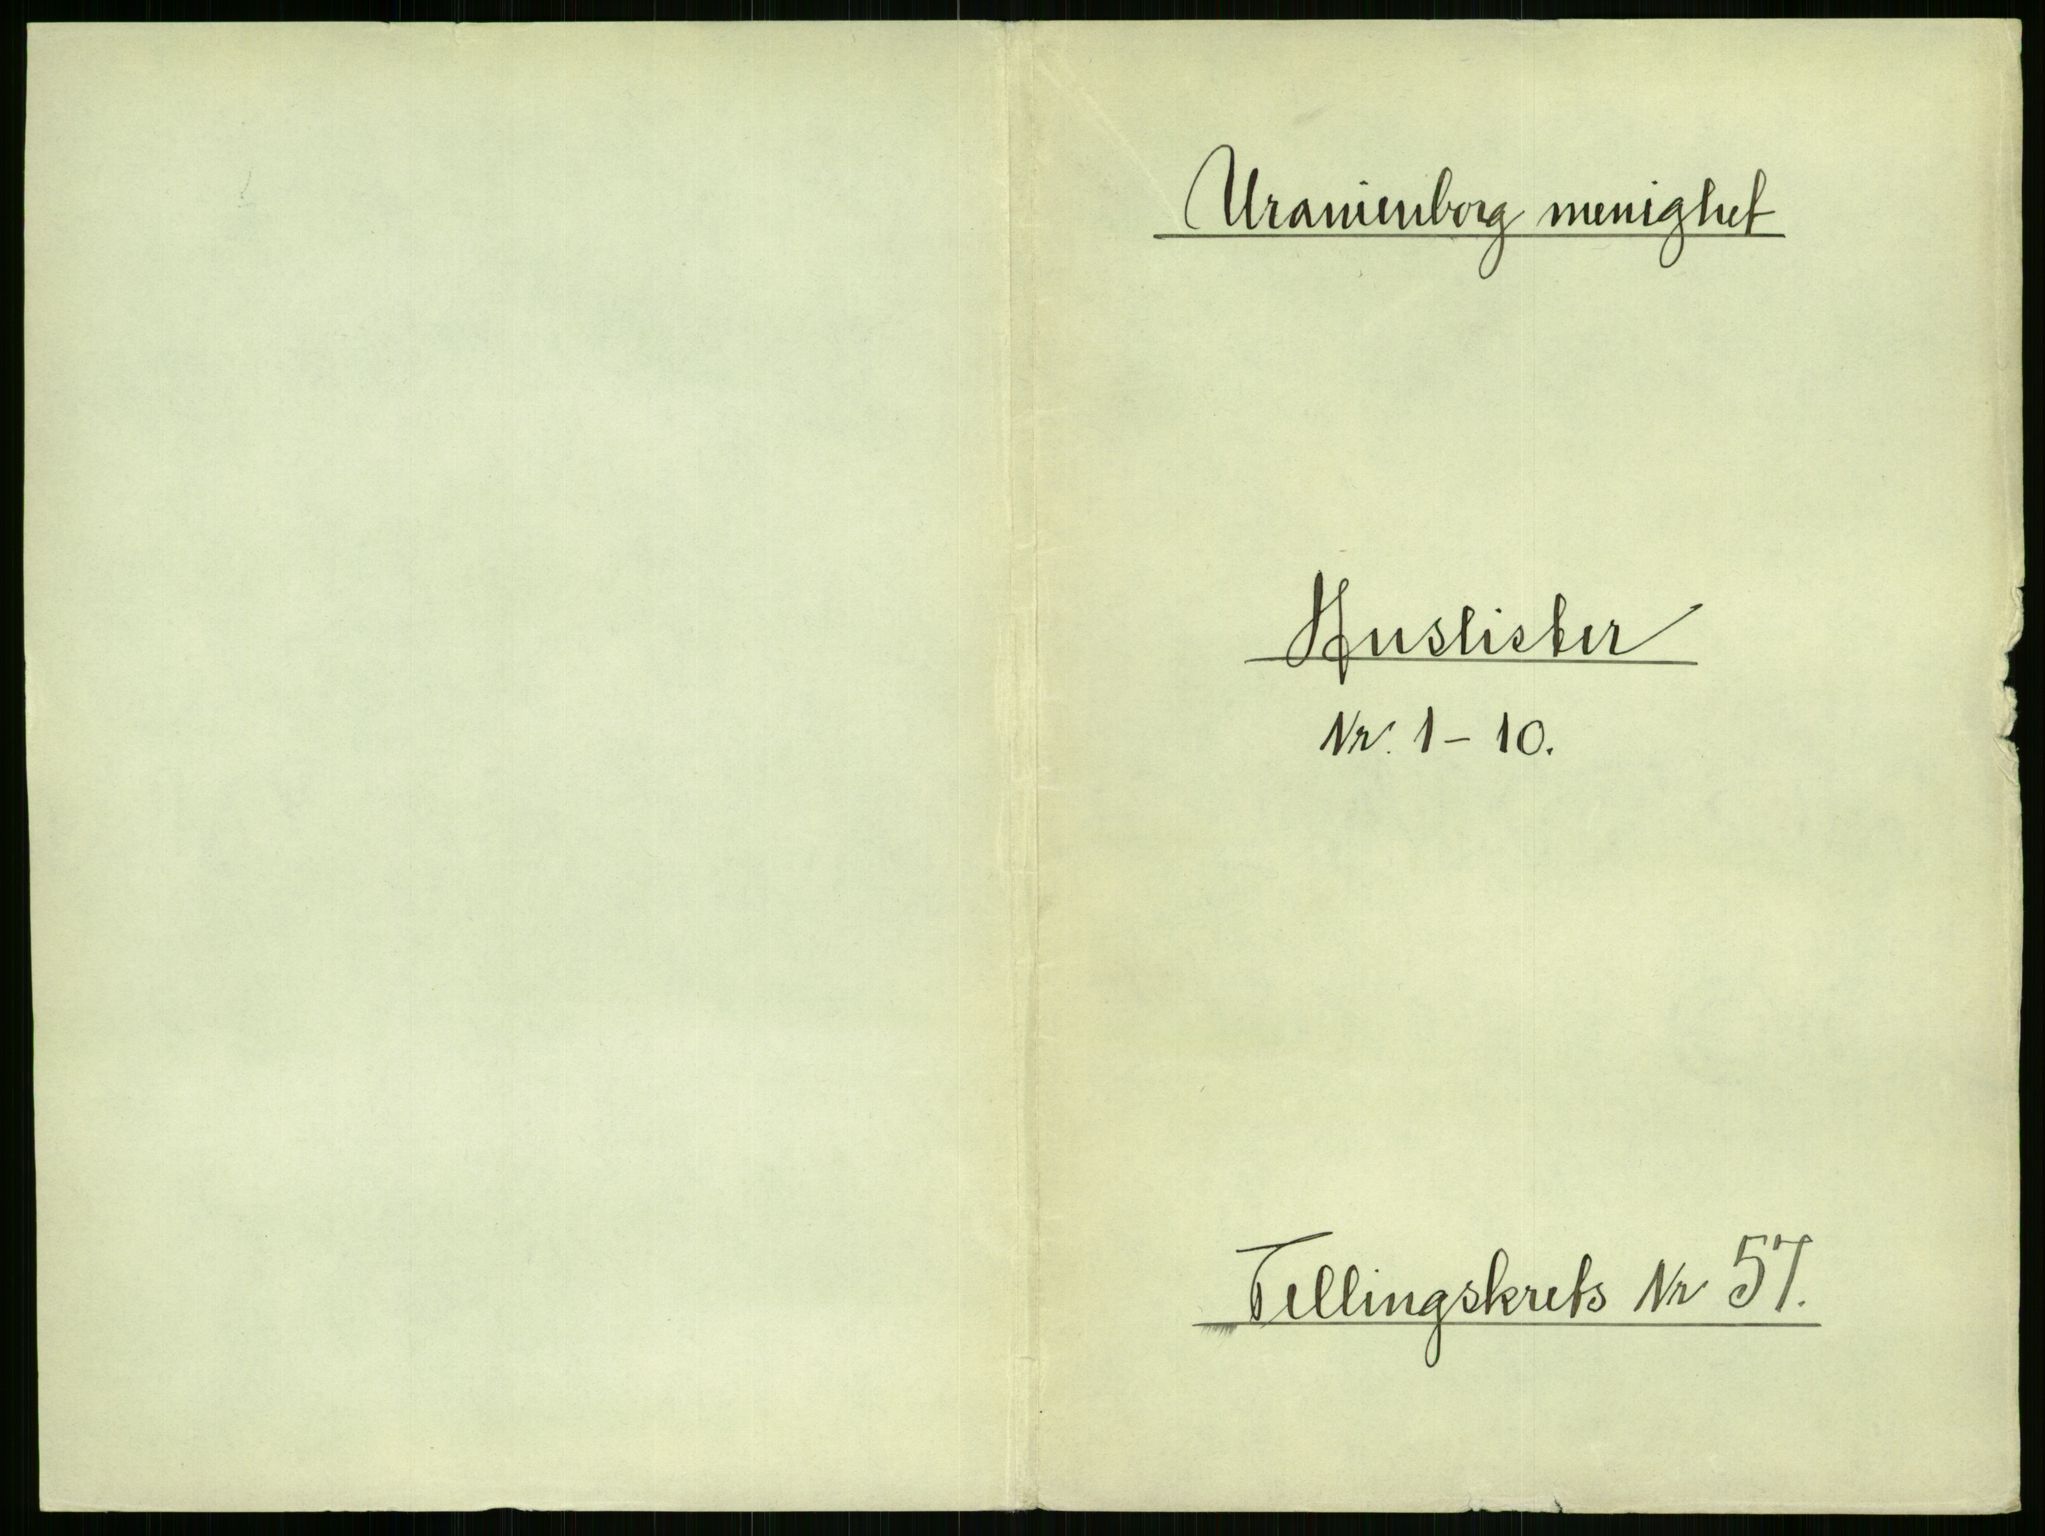 Uranienborg menighet
Huslister
Nr. 1 – 10.
Tellingskrets Nr 57.